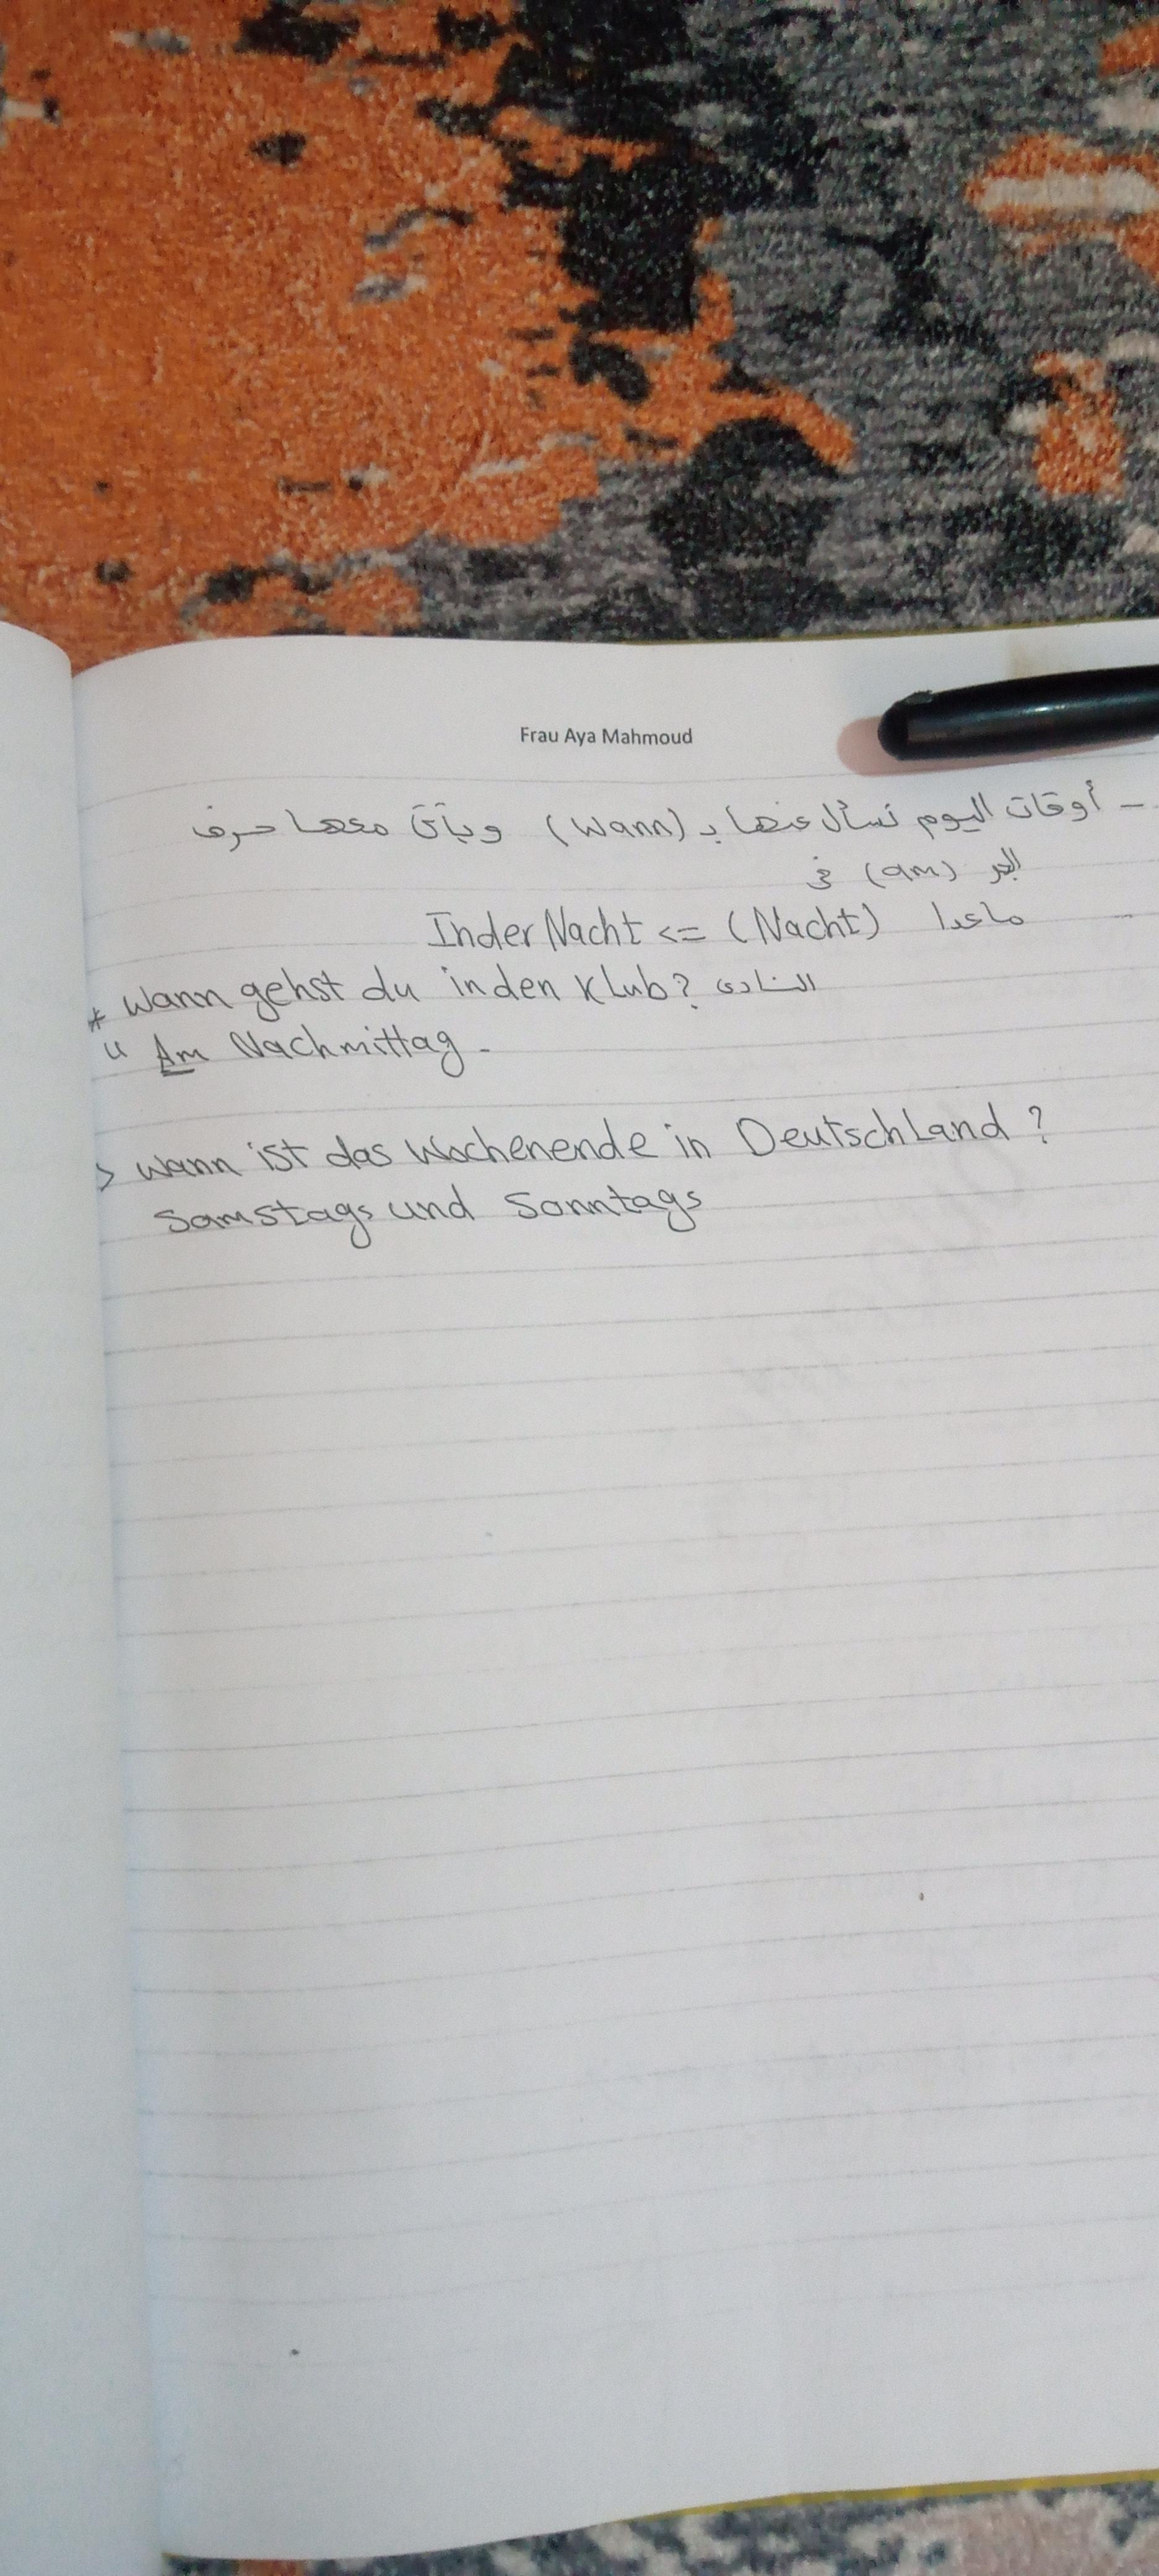 Frau Aya Mahmoud
- أوقات اليوم نسأل عنها بـ (Wann) ويأتى معها حرف
الجر (am) فى
ماعدا (Nacht) => In der Nacht
* Wann gehst du in den Klub? النادى
" Am Nachmittag -
> Wann ist das Wochenende in Deutschland ?
Samstags und Sonntags